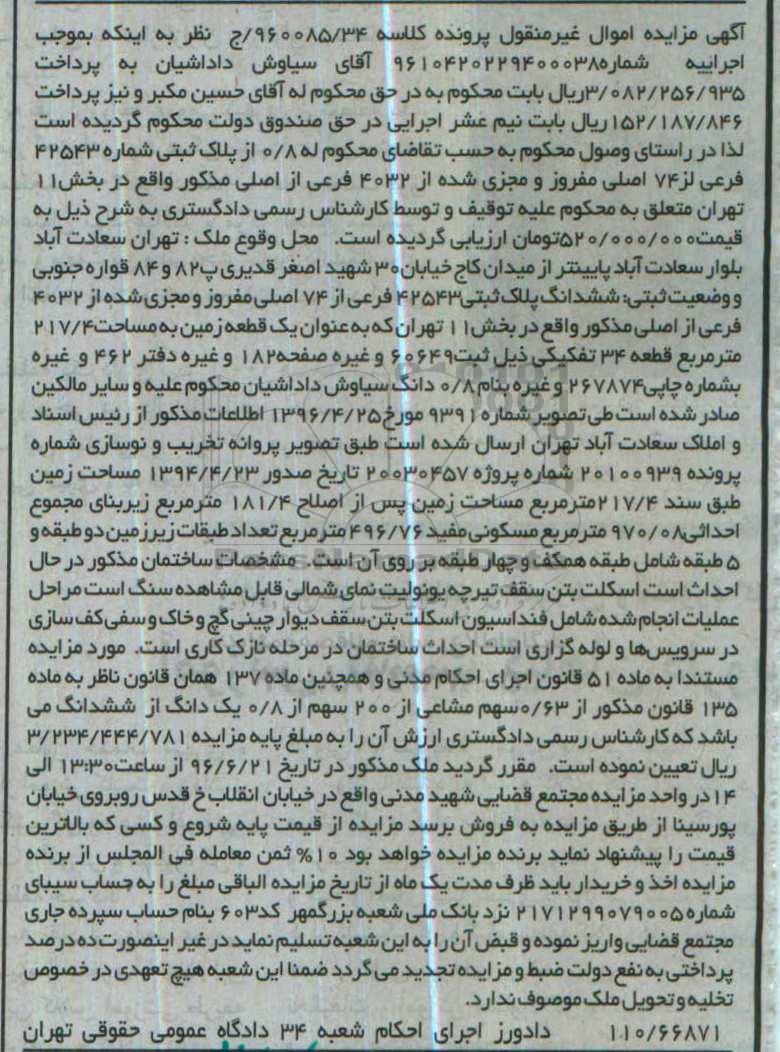 آگهی مزایده اموال غیرمنقول پرونده کلاسه ۹۶۰۰۸۵/۳۴/ج نظر به اینکه بموجب
اجراییه شماره۹۶۱۰۴۲۰۲۲۹۴۰۰۰۳۸ آقای سیاوش داداشیان به پرداخت
۳/۰۸۲/۲۵۶/۹۳۵ریال بابت محکوم به در حق محکوم له آقای حسین مکبر و نیز پرداخت
۱۵۲/۱۸۷/۸۴۶ریال بابت نیم عشر اجرایی در حق صندوق دولت محکوم گردیده است
لذا در راستای وصول محکوم به حسب تقاضای محکوم له ۰/۸ از پلاک ثبتی شماره ۴۲۵۴۳
فرعی لز۷۴ اصلی مفروز و مجزی شده از ۴۰۳۲ فرعی از اصلی مذکور واقع در بخش۱۱
تهران متعلق به محکوم علیه توقیف و توسط کارشناس رسمی دادگستری به شرح ذیل به
قیمت۵۲۰/۰۰۰/۰۰۰تومان ارزیابی گردیده است. محل وقوع ملک : تهران سعادت آباد
بلوار سعادت آباد پایینتر از میدان کاج خیابان۳۰ شهید اصغر قدیری پ۸۲ و ۸۴ قواره جنوبی
و وضعیت ثبتی: ششدانگ پلاک ثبتی۴۲۵۴۳ فرعی از ۷۴ اصلی مفروز و مجزی شده از ۴۰۳۲
فرعی از اصلی مذکور واقع در بخش۱۱ تهران که به عنوان یک قطعه زمین به مساحت۲۱۷/۴
مترمربع قطعه ۳۴ تفکیکی ذیل ثبت۶۰۶۴۹ و غیره صفحه۱۸۲ و غیره دفتر ۴۶۲ و غیره
بشماره چاپی۲۶۷۸۷۴ و غیره بنام ۰/۸ دانگ سیاوش داداشیان محکوم علیه و سایر مالکین
صادر شده است طی تصویر شماره ۹۳۹۱ مورخ۱۳۹۶/۴/۲۵ اطلاعات مذکور از رئیس اسناد
و املاک سعادت آباد تهران ارسال شده است طبق تصویر پروانه تخریب و نوسازی شماره
پرونده ۲۰۱۰۰۹۳۹ شماره پروژه ۲۰۰۳۰۴۵۷ تاریخ صدور ۱۳۹۴/۴/۲۳ مساحت زمین
طبق سند ۲۱۷/۴مترمربع مساحت زمین پس از اصلاح ۱۸۱/۴ مترمربع زیربنای مجموع
احداثی۹۷۰/۰۸ مترمربع مسکونی مفید ۴۹۶/۷۶ مترمربع تعداد طبقات زیرزمین دو طبقه و
۵ طبقه شامل طبقه همکف و چهار طبقه بر روی آن است. مشخصات ساختمان مذکور در حال
احداث است اسکلت بتن سقف تیرچه یونولیت نمای شمالی قابل مشاهده سنگ است مراحل
عملیات انجام شده شامل فنداسیون اسکلت بتن سقف دیوار چینی گچ و خاک و سفی کف سازی
در سرویس‌ها و لوله گزاری است احداث ساختمان در مرحله نازک کاری است. مورد مزایده
مستندا به ماده ۵۱ قانون اجرای احکام مدنی و همچنین ماده ۱۳۷ همان قانون ناظر به ماده
۱۳۵ قانون مذکور از ۰/۶۳سهم مشاعی از ۲۰۰ سهم از ۰/۸ یک دانگ از ششدانگ می
باشد که کارشناس رسمی دادگستری ارزش آن را به مبلغ پایه مزایده ۳/۲۳۴/۴۴۴/۷۸۱
ریال تعیین نموده است. مقرر گردید ملک مذکور در تاریخ ۹۶/۶/۲۱ از ساعت۱۳:۳۰ الی
۱۴ در واحد مزایده مجتمع قضایی شهید مدنی واقع در خیابان انقلاب خ قدس روبروی خیابان
پورسینا از طریق مزایده به فروش برسد مزایده از قیمت پایه شروع و کسی که بالاترین
قیمت را پیشنهاد نماید برنده مزایده خواهد بود ۱۰% ثمن معامله فی المجلس از برنده
مزایده اخذ و خریدار باید ظرف مدت یک ماه از تاریخ مزایده الباقی مبلغ را به حساب سیبای
شماره ۲۱۷۱۲۹۹۰۷۹۰۰۵ نزد بانک ملی شعبه بزرگمهر کد۶۰۳ بنام حساب سپرده جاری
مجتمع قضایی واریز نموده و قبض آن را به این شعبه تسلیم نماید در غیر اینصورت ده درصد
پرداختی به نفع دولت ضبط و مزایده تجدید می گردد ضمنا این شعبه هیچ تعهدی در خصوص
تخلیه و تحویل ملک موصوف ندارد.
۱۱۰/۶۶۸۷۱ دادورز اجرای احکام شعبه ۳۴ دادگاه عمومی حقوقی تهران